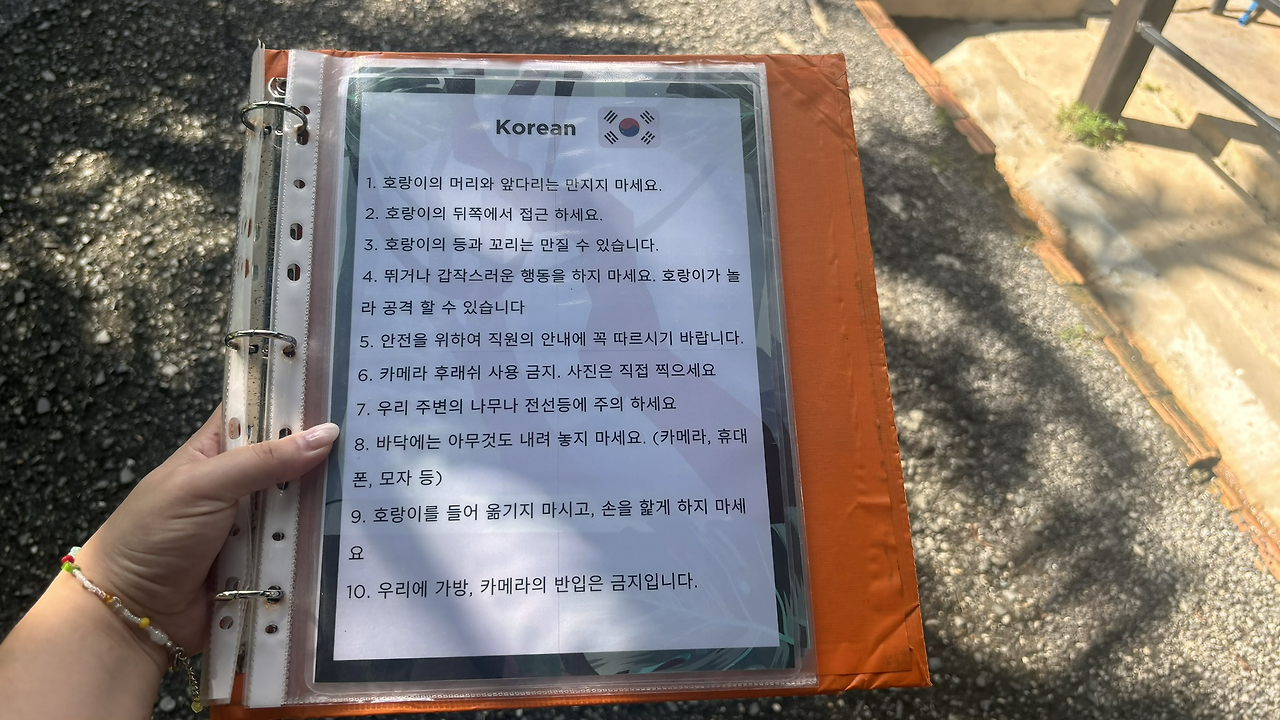 Korean
1. 호랑이의 머리와 앞다리는 만지지 마세요.
2. 호랑이의 뒤쪽에서 접근 하세요.
3. 호랑이의 등과 꼬리는 만질 수 있습니다.
4. 뛰거나 갑작스러운 행동을 하지 마세요. 호랑이가 놀
라 공격 할 수 있습니다
5. 안전을 위하여 직원의 안내에 꼭 따르시기 바랍니다.
6. 카메라 후래쉬 사용 금지. 사진은 직접 찍으세요
7. 우리 주변의 나무나 전선등에 주의 하세요
8. 바닥에는 아무것도 내려 놓지 마세요. (카메라, 휴대
폰, 모자 등)
9. 호랑이를 들어 옮기지 마시고, 손을 핥게 하지 마세
요
10. 우리에 가방, 카메라의 반입은 금지입니다.